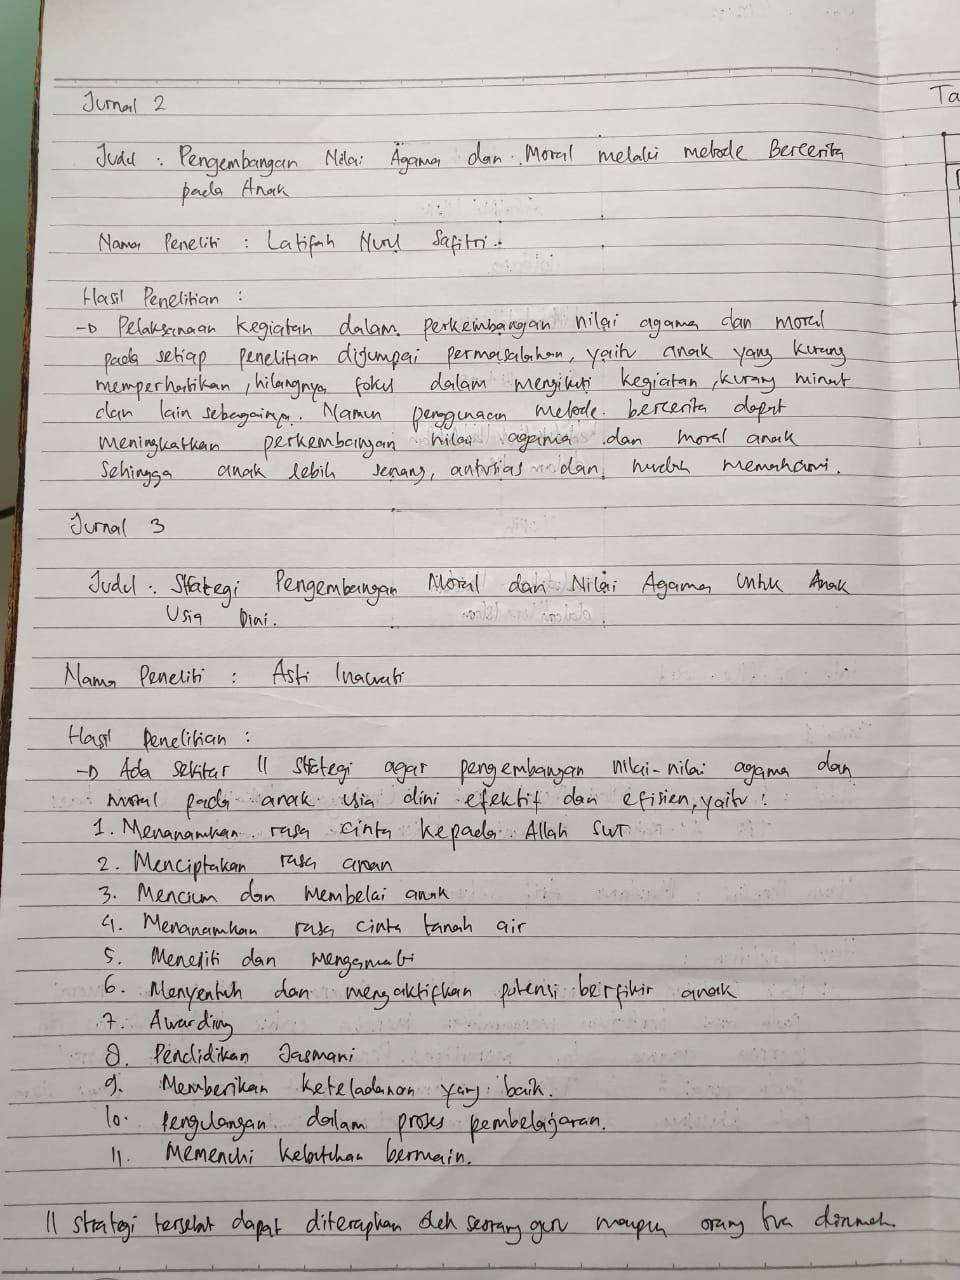 Jurnal 2
Ta
Judul : Pengembangan Nilai Agama dan Moral melalui metode Bercerita
pada Anak
Nama Peneliti : Latifah Nurul Safitri.
Hasil Penelitian :
Pelaksanaan kegiatan dalam perkembangan nilai agama dan moral
pada setiap penelitian dijumpai permasalahan, yaitu anak yang kurang
memperhatikan, hilangnya fokus dalam mengikuti kegiatan, kurang minat
dan lain sebagainya. Namun penggunaan metode bercerita dapat
meningkatkan perkembangan nilai agama dan moral anak
sehingga anak lebih senang, antusias dan mudah memahami.
Jurnal 3
Judul : Strategi Pengembangan Moral dan Nilai Agama Untuk Anak
Usia Dini.
Nama Peneliti : Asti Inawati
Hasil Penelitian :
Ada sekitar 11 strategi agar pengembangan nilai-nilai agama dan
moral pada anak usia dini efektif dan efisien, yaitu :
1. Menanamkan rasa cinta kepada Allah SWT
2. Menciptakan rasa aman
3. Mencium dan membelai anak
4. Menanamkan rasa cinta tanah air
5. Meneliti dan mengamati
6. Menyentuh dan mengaktifkan potensi berfikir anak
7. Awarding
8. Pendidikan Jasmani
9. Memberikan keteladanan yang baik.
10. Pengulangan dalam proses pembelajaran.
11. Memenuhi kebutuhan bermain.
11 strategi tersebut dapat diterapkan oleh seorang guru maupun orang tua dirumah.